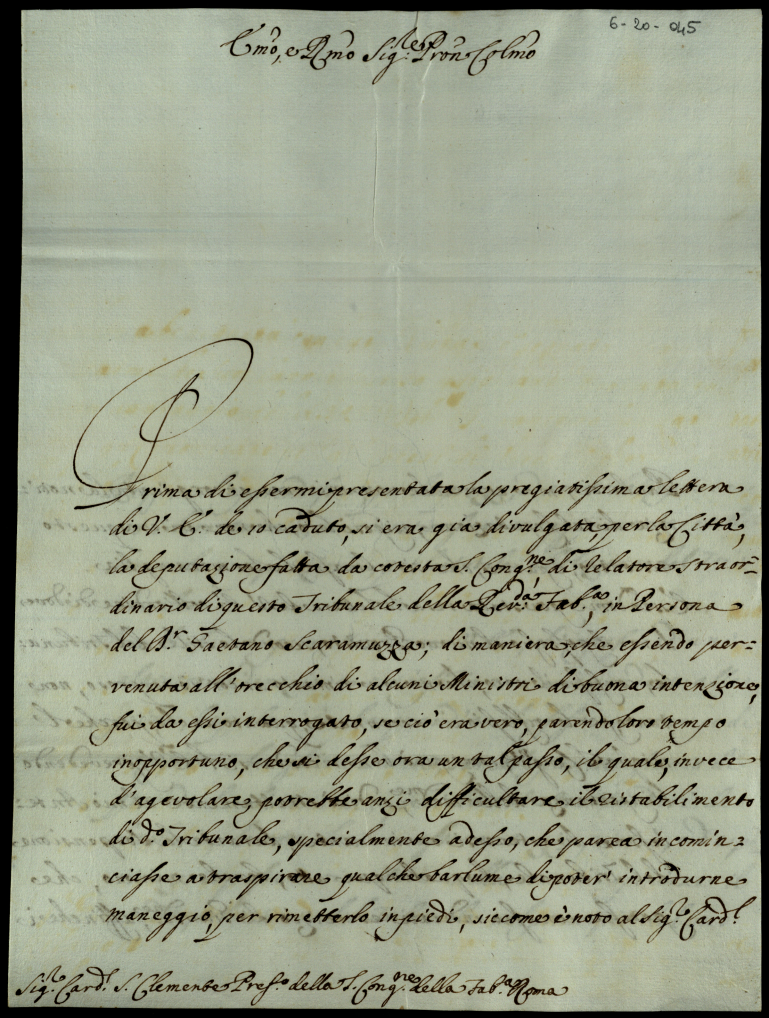 6-20-045
Emo, e Rmo Sig.re Pron Colmo
Prima di essermi presentata la pregiatissima lettera
di V. E. de 10 caduto, si era gia divulgata, per la Città,
la deputazione fatta da cotesta S. Cong.ne di Relatore straor=
dinario di questo Tribunale della Rev.da Fab.a, in Persona
del D.r Gaetano Scaramuzza; di maniera, che essendo per=
venuta all'orecchio di alcuni Ministri di buona intenzione,
fui da essi interrogato, se ciò era vero, parendo loro tempo
inopportuno, che si desse ora un tal passo, il quale, invece
d'agevolare, potrebbe anzi difficultare il ristabilimento
di d.o Tribunale, specialmente adesso, che parea incomin=
ciasse a traspirare qualche barlume di poter' introdurne
maneggio, per rimetterlo in piedi, siccome è noto al Sig.r Card.l
Sig.r Card.l S. Clemente Pref.o della S. Cong.ne della Fab.a Roma